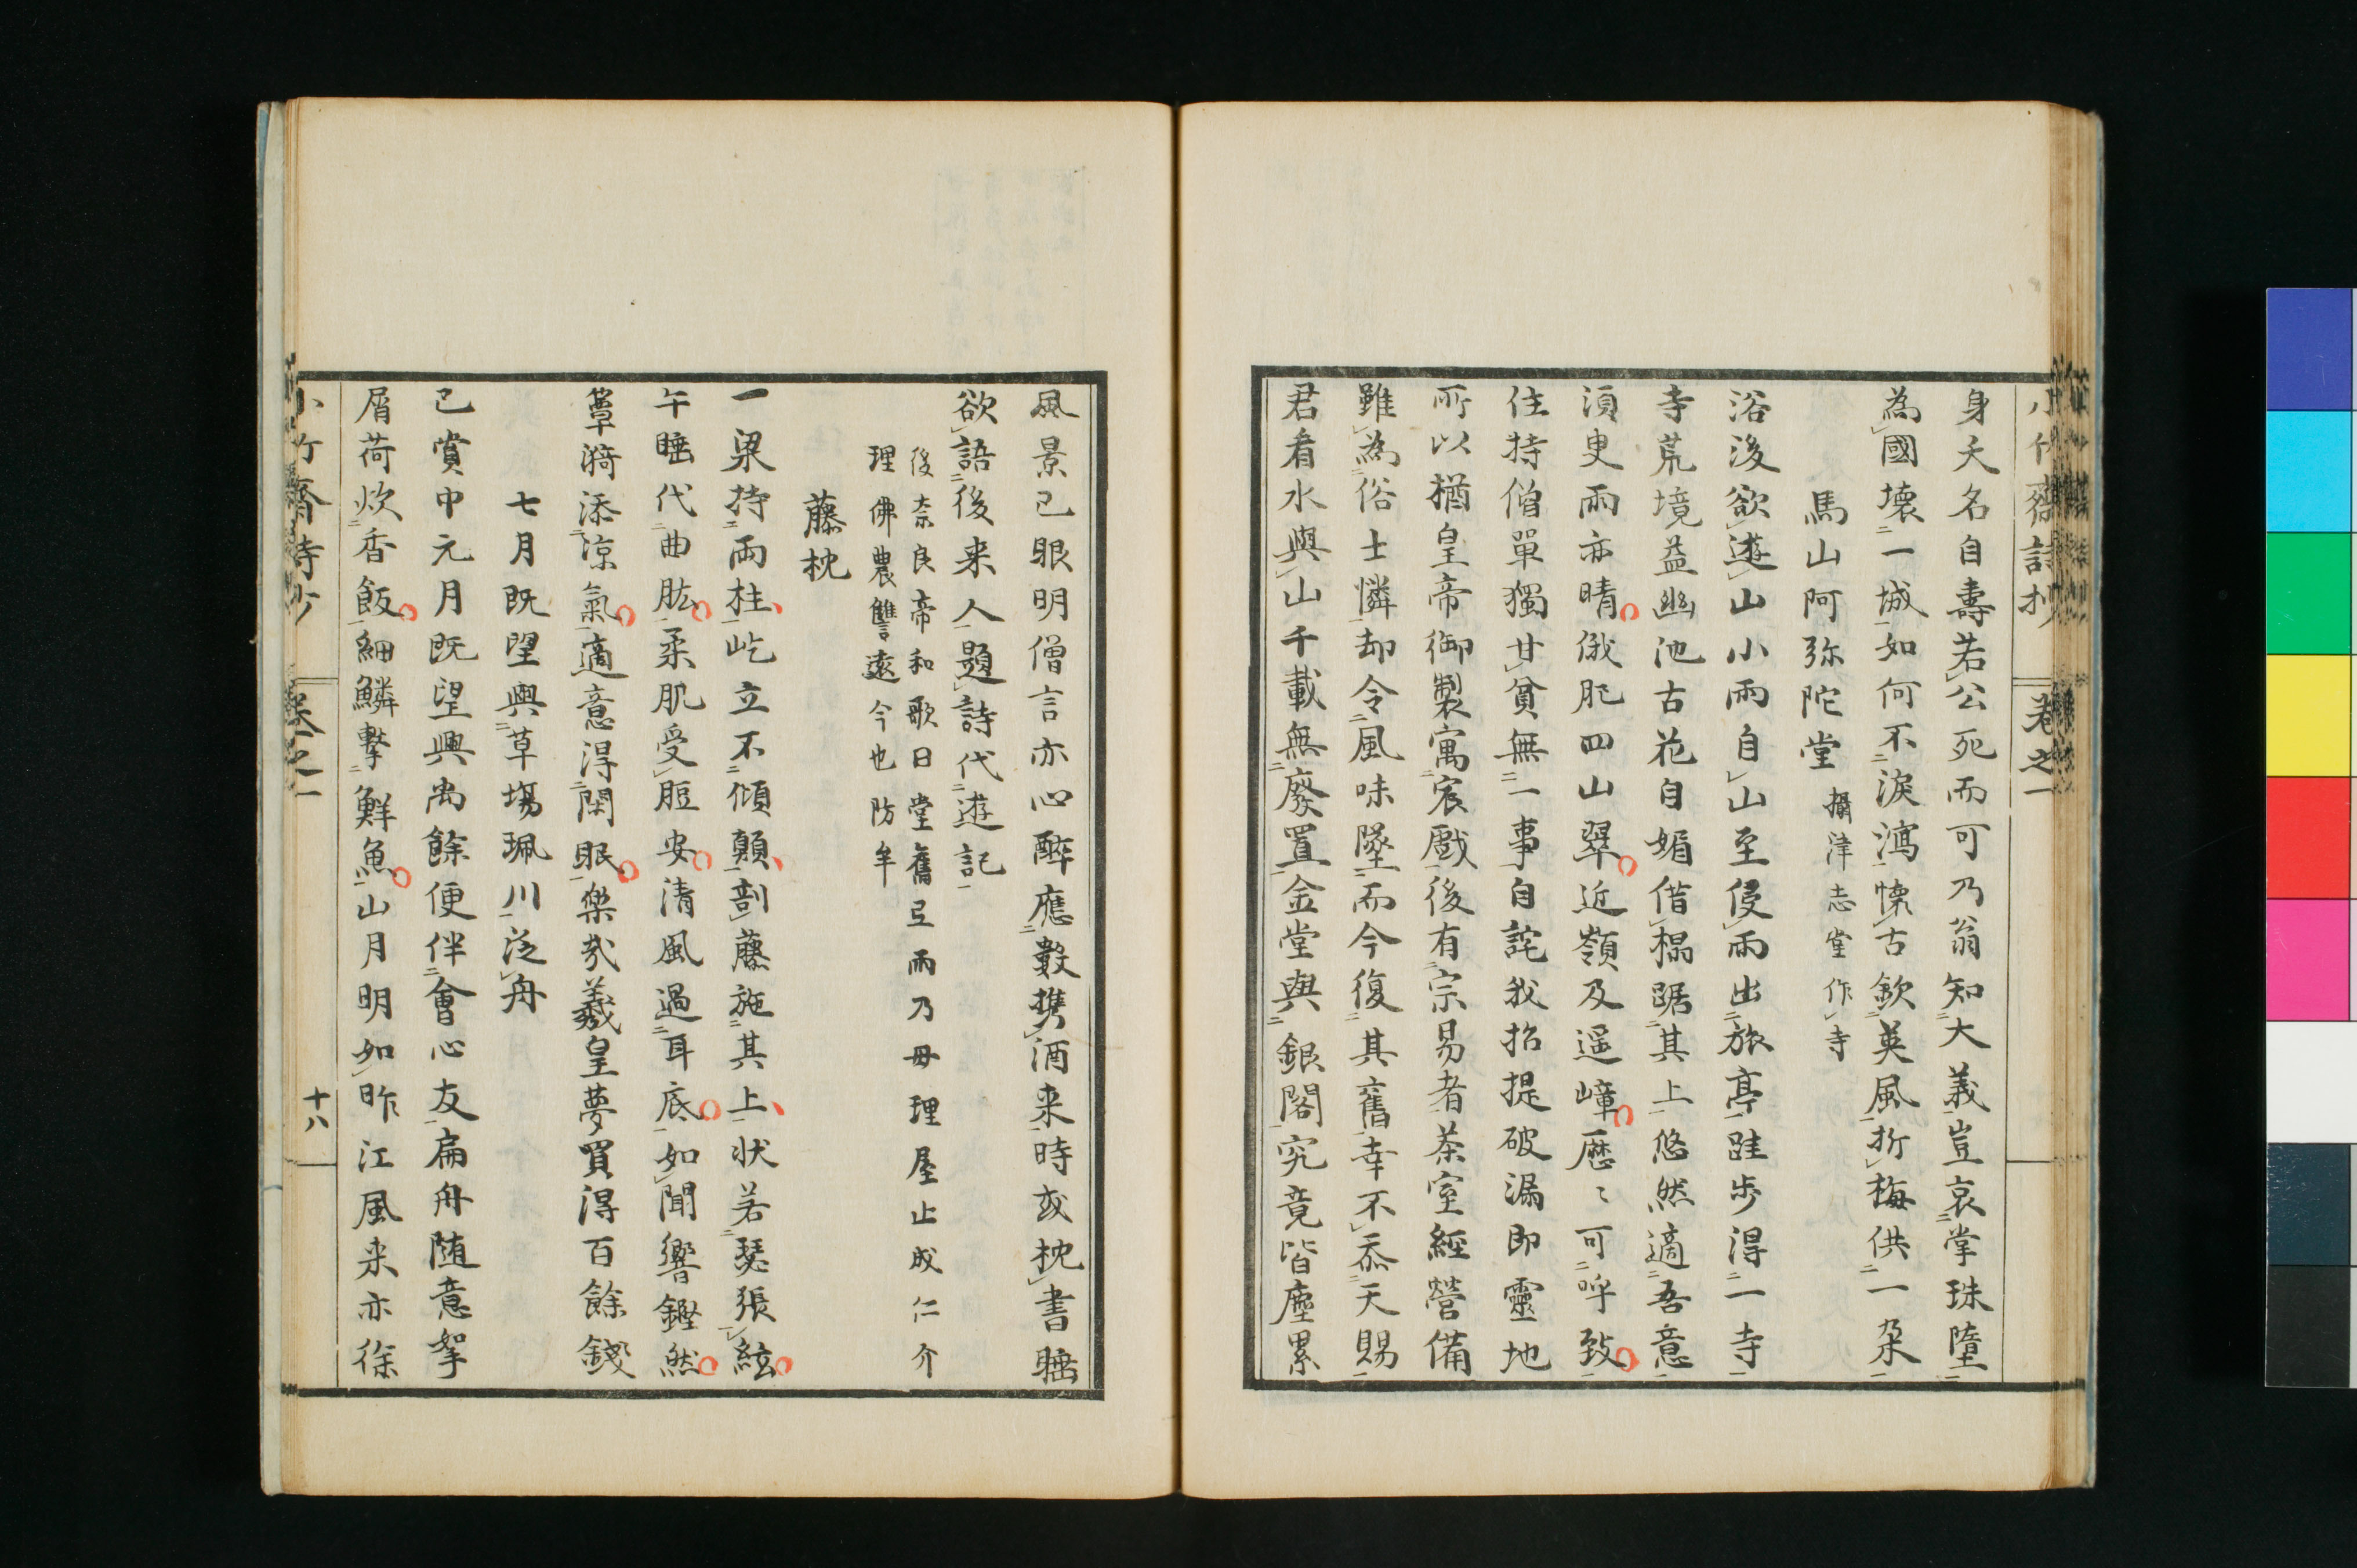 小竹齋詩抄 卷之一
身夭名自壽若公死而可乃翁知大義豈哀掌珠墮
為國壞一城如何不淚瀉懐古欽英風折梅供一朶
馬山阿弥陀堂 攝津志堂作寺
浴後欲遊山小雨自山至侵雨出旅亭跬步得一寺
寺荒境益幽池古花自媚借榻踞其上悠然適吾意
須臾雨亦晴俄肥四山翠近嶺及遥嶂歴〻可呼致
住持僧單獨甘貧無一事自詫我招提破漏即靈地
所以猶皇帝御製寓宸戲後有宗易者茶室經營備
雖為俗士憐却令風味墜而今復其舊幸不忝天賜
君看水與山千載無廢置金堂與銀閣究竟皆塵累
風景已眼明僧言亦心醉應數携酒来時或枕書睡
欲語後来人題詩代遊記
後奈良帝和歌曰堂舊弖雨乃毋理屋止成仁介
理佛農讐遠今也防牟
藤枕
一梁持兩柱屹立不傾顛剖藤施其上狀若瑟張絃
午睡代曲肱柔肌受脰安清風過耳底如聞響鏗然
簟漪添涼氣適意得閑眠樂哉羲皇夢買得百餘錢
七月既望與草塲珮川泛舟
已賞中元月既望興尚餘便伴會心友扁舟随意拏
屑荷炊香飯細鱗擊鮮魚山月明如昨江風来亦徐
小竹齋詩抄 卷之一 十八